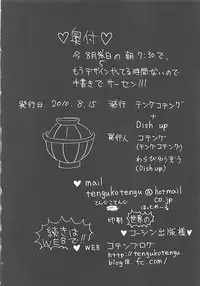 ♡奥付♡
今8月5日の朝7:30で、
もうデザインやってる時間ないので
手書きでサーセン!!!
発行日 2010.8.15 発行 テングコテング
+
Dish up
発行人 コテング
(テングコテング)
わらびゆうぞう
(Dish up)
♡mail
tengukotengu@hotmail
.co.jp
てんぐこてんぐ ほっとめーる
印刷 世界の
コーシン出版様♡
続きは
WEBで!!
♡WEB コテンブログ
http://tengukotengu
blog18.fc.com/